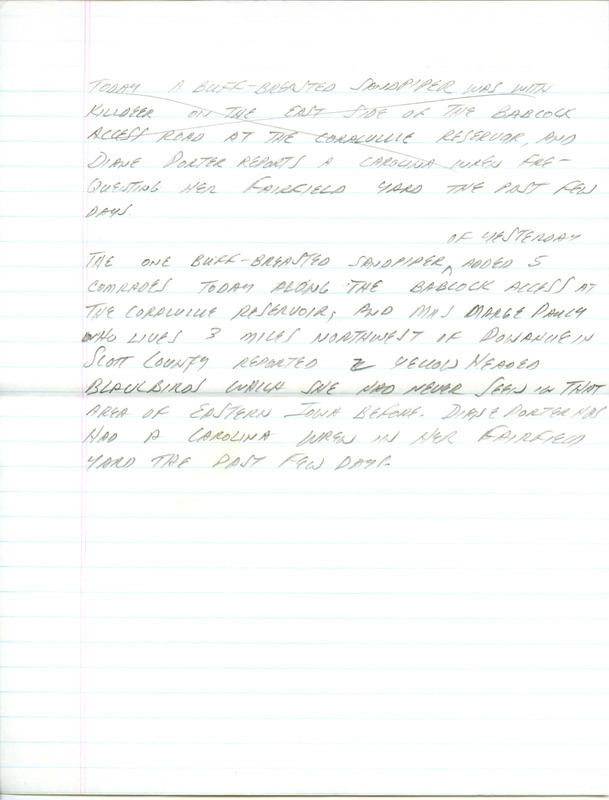 TODAY A BUFF-BREASTED SANDPIPER WAS WITH
KILLDEER ON THE EAST SIDE OF THE BABCOCK
ACCESS ROAD AT THE CORALVILLE RESERVOIR, AND
DIANE PORTER REPORTS A CAROLINA WREN FRE-
QUENTING HER FAIRFIELD YARD THE PAST FEW
DAYS.
OF YESTERDAY
THE ONE BUFF-BREASTED SANDPIPER ^ ADDED 5
COMRADES TODAY ALONG THE BABCOCK ACCESS AT
THE CORALVILLE RESERVOIR, AND MRS MARGE PAULY
WHO LIVES 3 MILES NORTHWEST OF DONAHUE IN
SCOTT COUNTY REPORTED 2 YELLOW HEADED
BLACKBIRDS WHICH SHE HAD NEVER SEEN IN THAT
AREA OF EASTERN IOWA BEFORE. DIANE PORTER HAS
HAD A CAROLINA WREN IN HER FAIRFIELD
YARD THE PAST FEW DAYS.